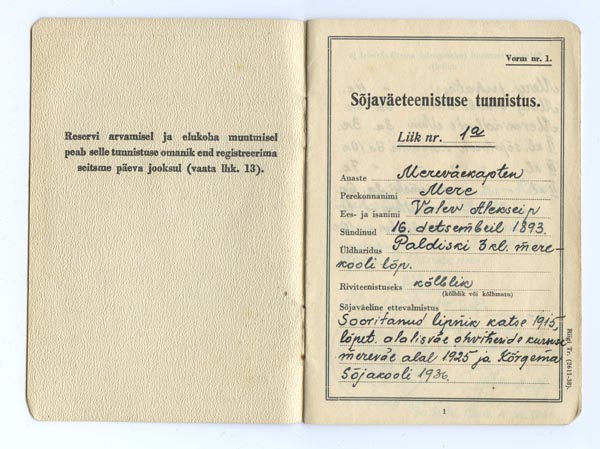 Reservi arvamisel ja elukoha muutmisel
peab selle tunnistuse omanik end registreerima
seitsme päeva jooksul (vaata lhk. 13).
Vorm nr. 1.
Sõjaväeteenistuse tunnistus.
Liik nr. 1a
Auaste Mereväekapten
Perekonnanimi Mere
Ees- ja isanimi Valev Aleksei p
Sündinud 16. detsembril 1893.
Üldharidus Paldiski 3 kl. mere-
kooli lõp.
Riviteenistuseks kõlblik
(kõlblik või kõlbmatu)
Sõjaväeline ettevalmistus
Sooritanud lipnik katse 1915,
lõpet. alalisväe ohvitseride kursuse
mereväe alal 1925 ja Kõrgema
Sõjakooli 1936.
Riigi Tr. (2611-38).
1